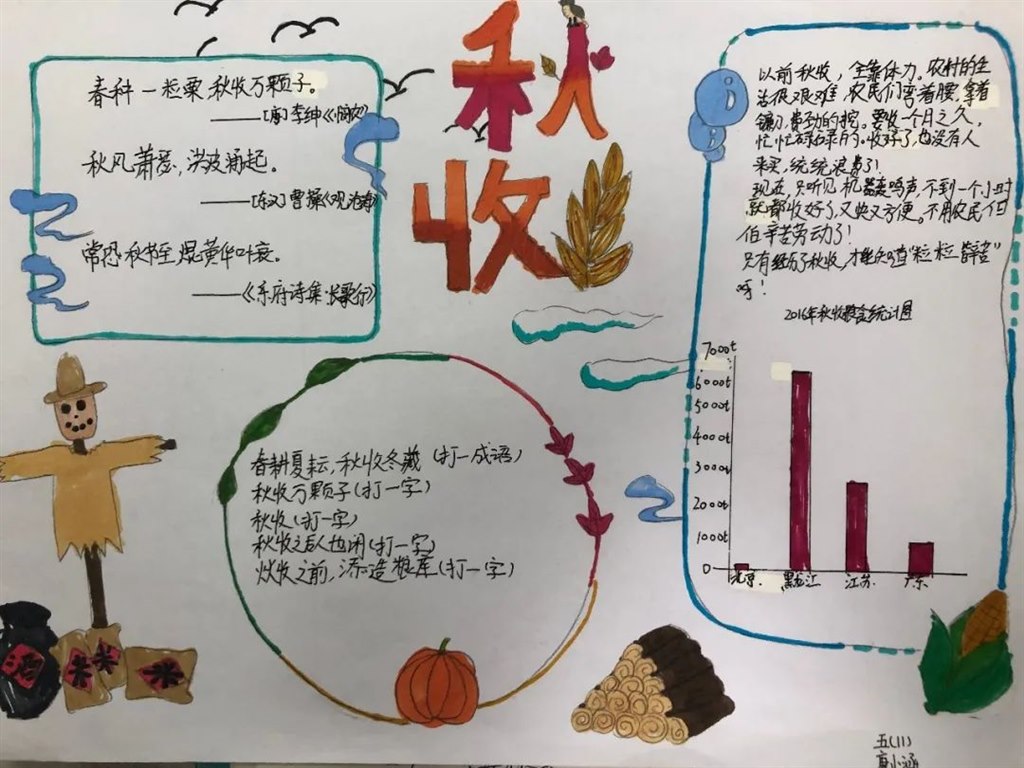 秋
收
春种一粒粟,秋收万颗子。
——[唐]李绅《悯农》
秋风萧瑟,洪波涌起。
——[东汉]曹操《观沧海》
常恐秋节至,焜黄华叶衰。
——《乐府诗集·长歌行》
以前秋收,全靠体力。农村的生
活很艰难,农民们弯着腰,拿着
镰刀,费劲的挖。要收一个月之久,
忙忙碌碌的。收好了,也没有人
来买,统统浪费了!
现在,只听见机器轰鸣声,不到一个小时
就都收好了,又快又方便。不用农民伯
伯辛苦劳动了!
只有经历了秋收,才能知道"粒粒皆辛苦"
呀!
2016年秋收粮食统计图
7000t
6000t
5000t
4000t
3000t
2000t
1000t
0
北京 黑龙江 江苏 广东
春耕夏耘,秋收冬藏(打一成语)
秋收万颗子(打一字)
秋收(打一字)
秋收之后人也闲(打一字)
秋收之前,添造粮库(打一字)
酒
米 米 米
五(11)
小涵